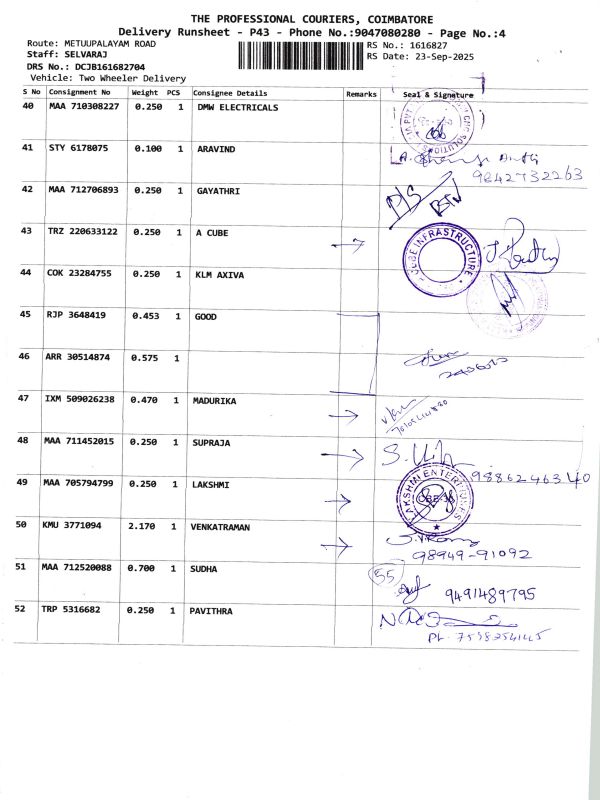 THE PROFESSIONAL COURIERS, COIMBATORE
Delivery Runsheet - P43 - Phone No.:9047080280 - Page No.:4
Route: METUUPALAYAM ROAD
RS No.: 1616827
Staff: SELVARAJ
RS Date: 23-Sep-2025
DRS No.: DCJB161682704
Vehicle: Two Wheeler Delivery
S No Consignment No Weight PCS Consignee Details Remarks Seal & Signature
40 MAA 710308227 0.250 1 DMW ELECTRICALS
41 STY 6178075 0.100 1 ARAVIND
9842732263
42 MAA 712706893 0.250 1 GAYATHRI
43 TRZ 220633122 0.250 1 A CUBE
INFRASTRUCTURE
44 COK 23284755 0.250 1 KLM AXIVA
45 RJP 3648419 0.453 1 GOOD
46 ARR 30514874 0.575 1
47 IXM 509026238 0.470 1 MADURIKA
48 MAA 711452015 0.250 1 SUPRAJA
9886246340
49 MAA 705794799 0.250 1 LAKSHMI
LAKSHMI ENTERPRISES
50 KMU 3771094 2.170 1 VENKATRAMAN
98949-91092
51 MAA 712520088 0.700 1 SUDHA
55
9491489795
52 TRP 5316682 0.250 1 PAVITHRA